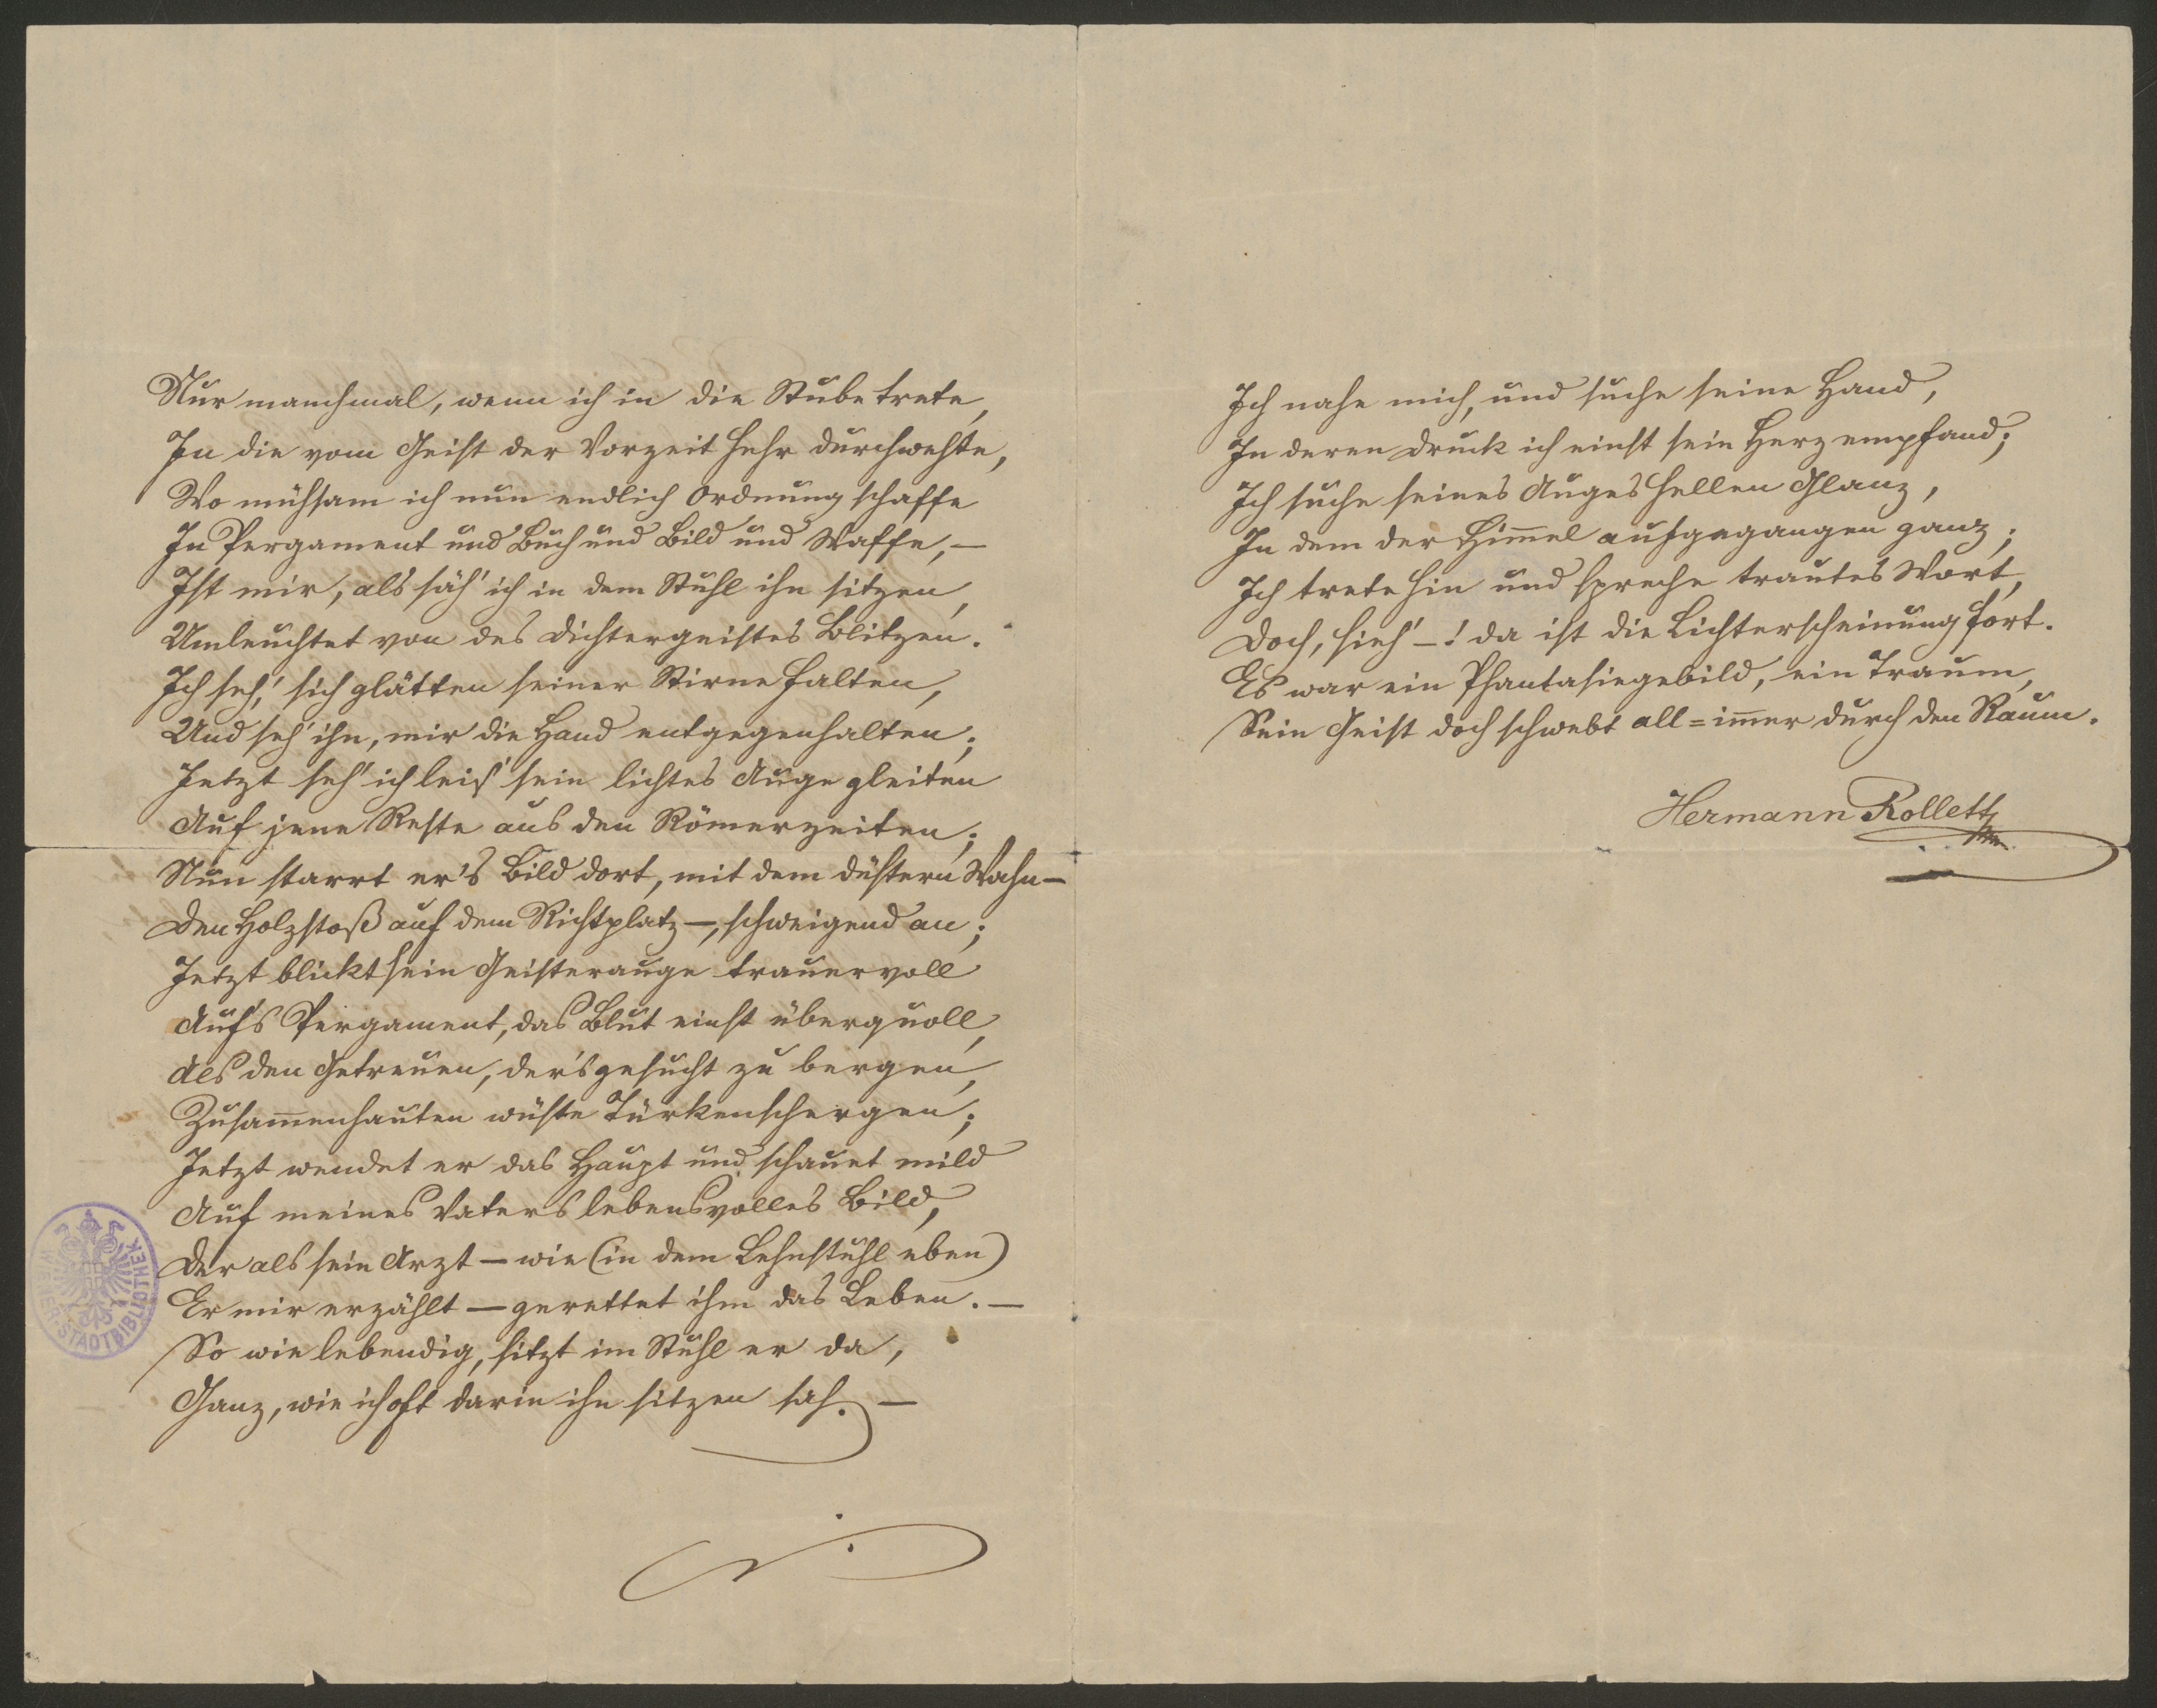 Nur manchmal, wenn ich in die Stube trete,
In die vom Geist der Vorzeit hehr durchwehte,
Wo mühsam ich nun endlich Ordnung schaffe
In Pergament und Buch und Bild und Waffe, —
Ist mir, als säh' ich in dem Stuhl ihn sitzen,
Umleuchtet von des Dichtergeistes Blitzen.
Ich seh', sich glätten seiner Stirne Falten,
Und seh' ihn, mir die Hand entgegenhalten;
Jetzt seh' ich leis' sein lichtes Auge gleiten
Auf jene Reste aus den Römerzeiten;
Nun starrt er's Bild dort, mit dem düstern Wahn —
Den Holzstoß auf dem Richtplatz —, schweigend an;
Jetzt blickt sein Geisterauge trauervoll
Auf's Pergament, das Blut einst überquoll,
Als den Getreuen, der's gesucht zu bergen,
Zusam̄enhauten wüste Türkenschergen;
Jetzt wendet er das Haupt und schauet mild
Auf meines Vaters lebensvolles Bild,
Der als sein Arzt — wie (in dem Lehnstuhl eben)
Er mir erzählt — gerettet ihm das Leben. —
So wie lebendig, sitzt im Stuhl er da,
Ganz, wie ich oft darin ihn sitzen sah. —
WIENER STADTBIBLIOTHEK
Ich nahe mich, und suche seine Hand,
In deren Druck ich einst sein Herz empfand;
Ich suche seines Auges hellen Glanz,
In dem der Him̄el aufgegangen ganz;
Ich trete hin und spreche trautes Wort,
Doch, sieh' —! da ist die Lichterscheinung fort.
Es war ein Phantasiegebild, ein Traum,
Sein Geist doch schwebt all=im̄er durch den Raum.
Hermann Rollett